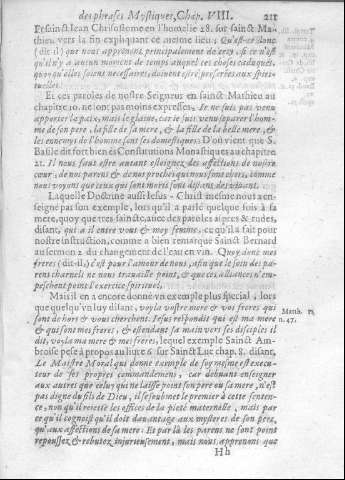 des phrases Mystiques, Chap. VIII. 211
Et sainct Iean Chrisostome en l'homelie 28. sur sainct Ma-
thieu vers la fin expliquant ce mesme lieu; Qu'est-ce donc
(dit il) que nous apprenons principalement de cecy, si ce n'est
qu'il n'y a aucun moment de temps auquel ces choses caduques,
quoy qu'elles soient necessaires, doivent estre preferées aux spiri-
tuelles?
Et ces paroles de nostre Seigneur en sainct Mathieu au
chapitre 10. ne sont pas moins expresses. Ie ne suis pas venu
apporter la paix, mais le glaive, car ie suis venu separer l'hom-
me de son pere, la fille de sa mere, & la fille de la belle mere, &
les ennemys de l'homme sont ses domestiques: D'où vient que S.
Basile dit fort bien és Constitutions Monastiques au chapitre
21. Il nous faut estre autant esloignez des affections de nostre
cœur, de nos parens & de nos proches qui nous sont chers, comme
nous voyons que ceux qui sont morts sont distans des vivans.
Laquelle Doctrine aussi Iesus-Christ mesme nous a en-
seigné par son exemple, lors qu'il a parlé quelque fois à sa
mere, quoy que tres saincte, avec des paroles aspres & rudes,
disant, qu'y a il entre vous & moy femme, ce qu'il a fait pour
nostre instruction, comme a bien remarqué Sainct Bernard
au sermon 2. du changement de l'eau en vin. Quoy donc mes
freres (dit-il,) c'est pour l'amour de nous, afin que le soin des pa-
rens charnels ne nous travaille point, & que ces alliances n'em-
peschent point l'exercice spirituel.
Mais il en a encore donné vn exemple plus special, lors
que quelqu'vn luy disant, voyla vostre mere & vos freres qui
sont dehors & vous cherchent. Iesus respondit qui est ma mere
& qui sont mes freres, & estendant sa main vers ses disciples il
dit, voyla ma mere & mes freres, lequel exemple Sainct Am-
broise pese à propos au livre 6 sur Sainct Luc chap. 8. disant,
Le Maistre Moral qui donne exemple de soy mesme est execu-
teur de ses propres commandemens, car devant enseigner
aux autres que celuy qui ne laisse point son pere ou sa mere, n'est
pas digne du fils de Dieu, il se soubmet le premier à cette senten-
ce, non qu'il reiette les offices de la pieté maternelle, mais par
ce qu'il cognoist qu'il doit davantage aux mysteres de son pere,
qu'aux affections de sa mere: Et par là les parens ne sont point
repoussez & rebutez iniurieusement, mais nous apprenons que
Math. 12.
n. 47.
Hh